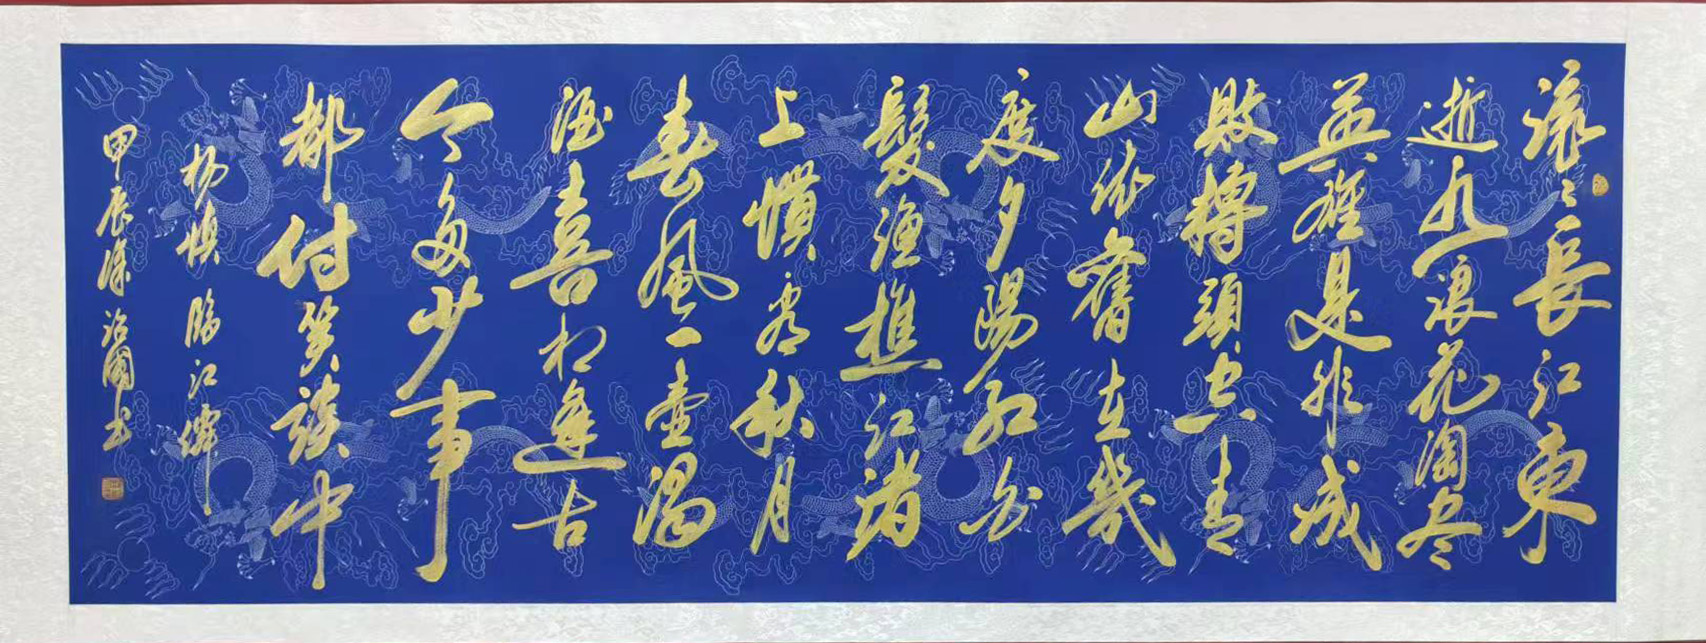 滚〻長江東
逝水浪花淘尽
英雄是非成
敗轉頭空青
山依舊在幾
度夕陽紅白
髮漁樵江渚
上慣看秋月
春風一壺濁
酒喜相逢古
今多少事
都付笑談中
杨慎臨江僊
甲辰治國书